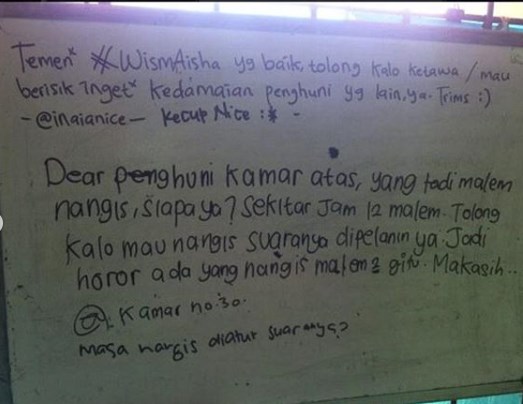 Temen" #WismAisha yg baik, tolong kalo ketawa/mau
berisik inget" kedamaian penghuni yg lain, ya. Trims :)
-@inaianice- kecup Nice :* -
Dear penghuni kamar atas, yang tadi malem
nangis, siapa ya? Sekitar jam 12 malem. Tolong
kalo mau nangis suaranya dipelanin ya. Jadi
horor ada yang nangis malem2 gitu. Makasih..
Kamar no.30.
masa nangis diatur suaranya?